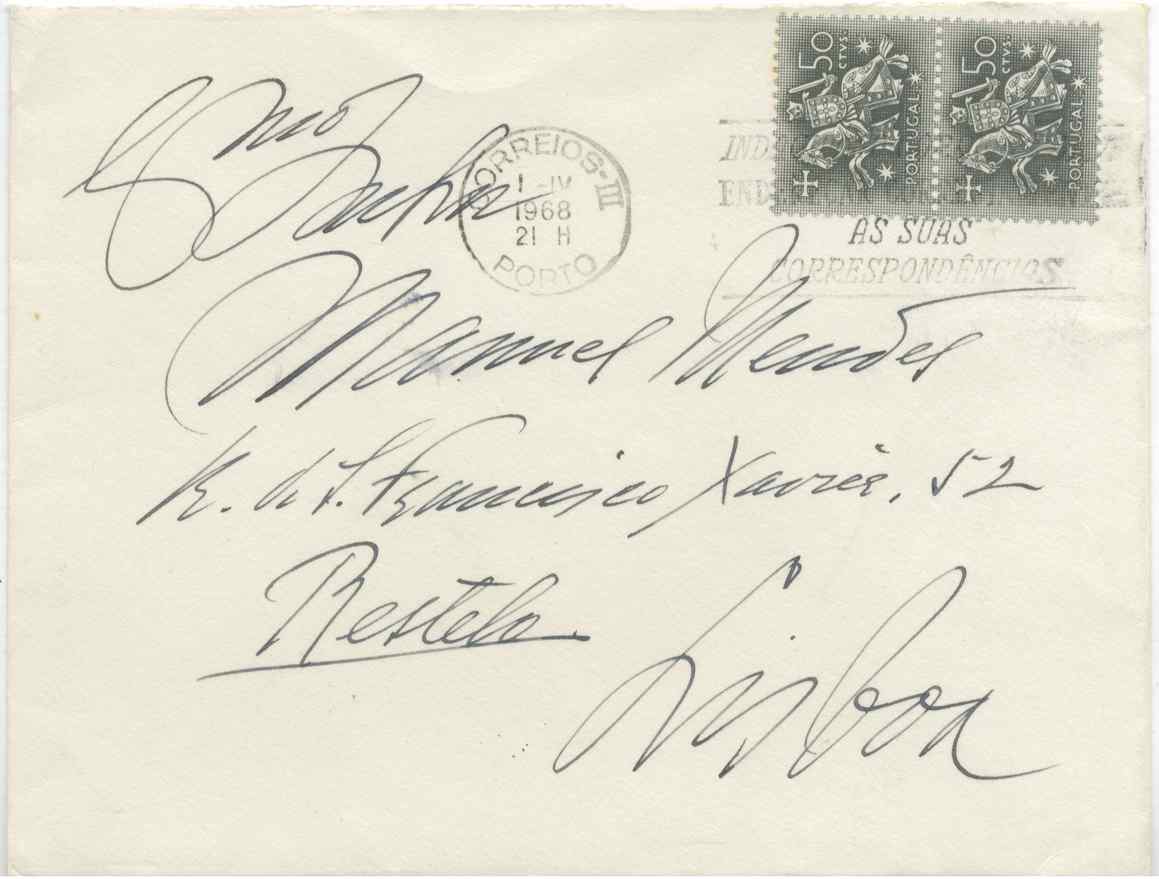 50 CTVS. PORTUGAL
50 CTVS. PORTUGAL
CORREIOS-III
1-IV
1968
21 H
PORTO
AS SUAS
CORRESPONDÊNCIAS
Exmo
Senhor
Manuel Mendes
R. de S. Francisco Xavier, 52
Restelo
Lisboa